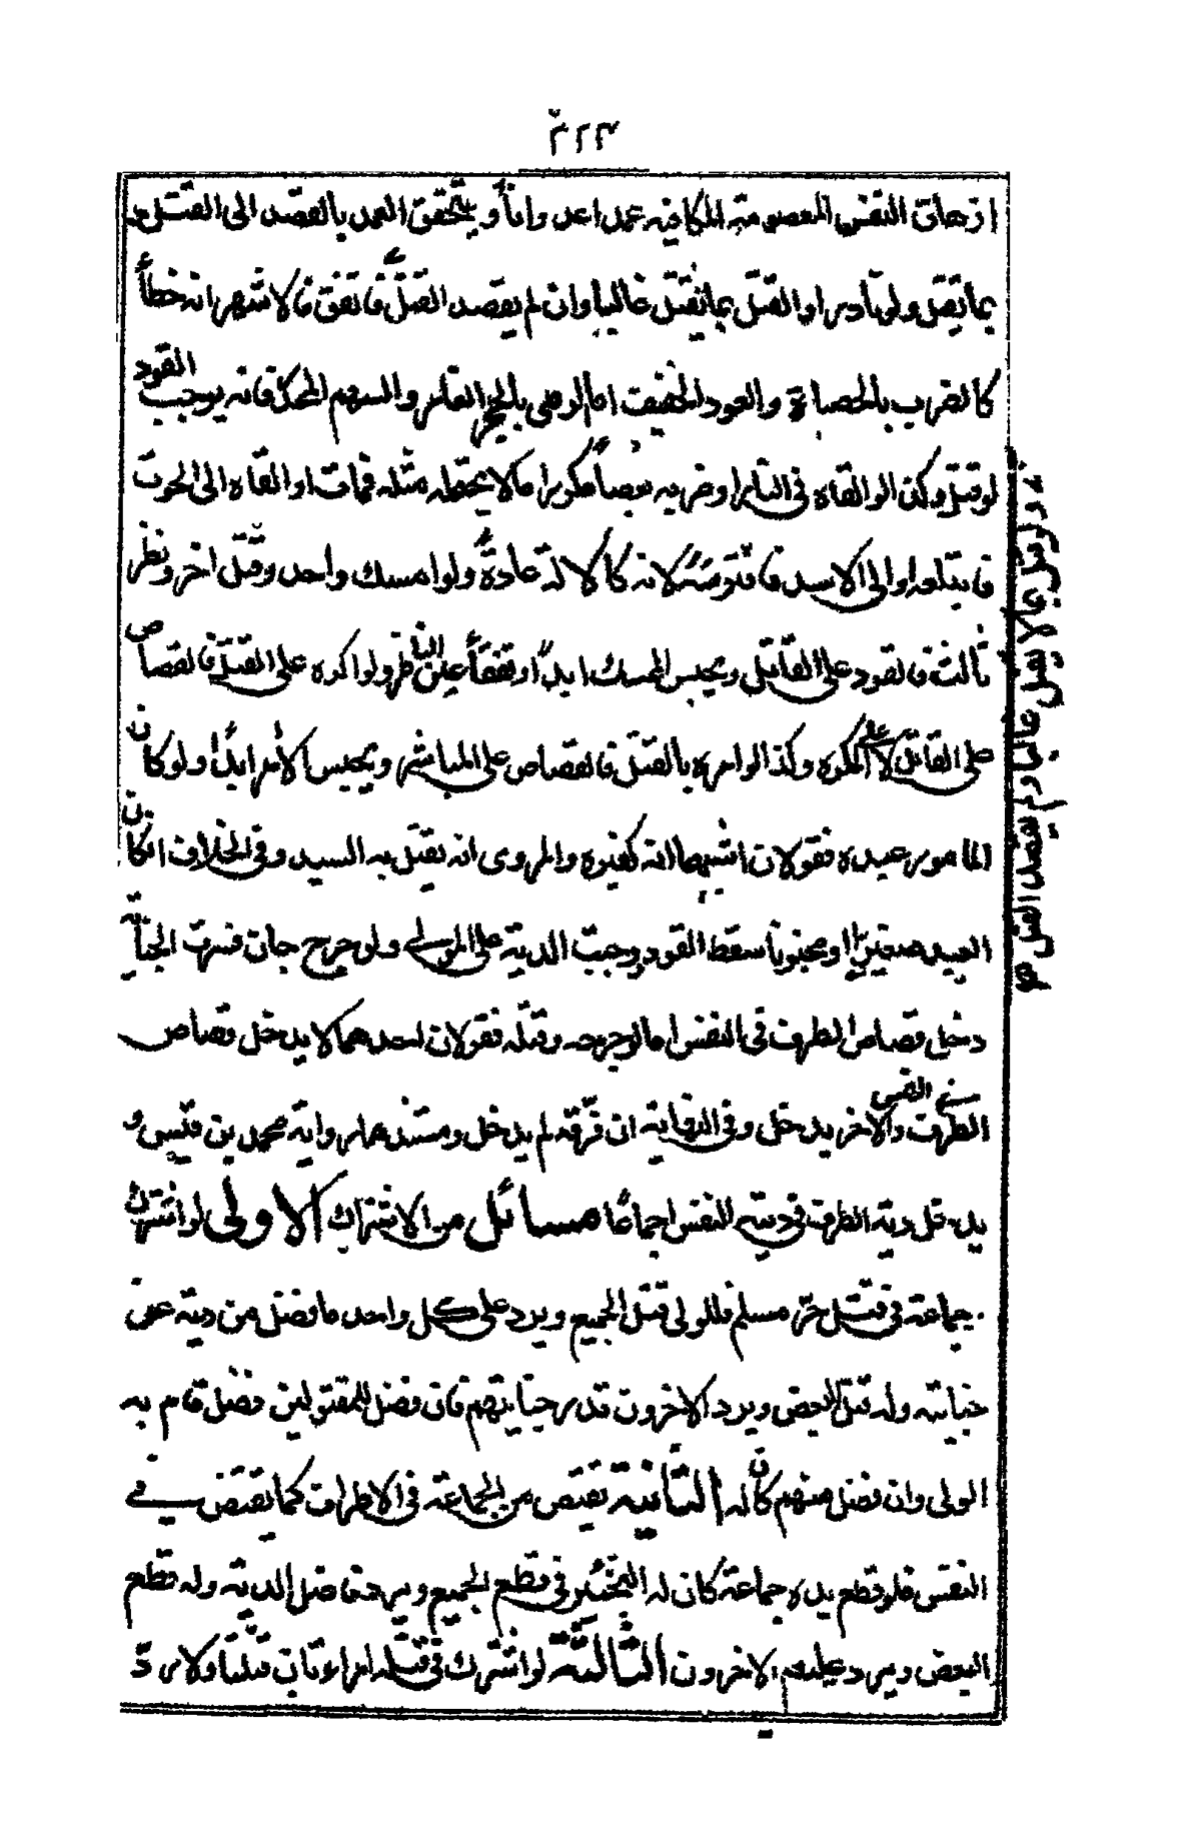 ازهاق النفس المعصومة المكافية عمدا عدوانا و يتحقق العمد بالقصد الى القتل
بما يقتل ولو نادرا او القتل بما يقتل غالبا وان لم يقصد القتل فاتفق فالاشهر انه خطأ
كالضرب بالحصاة والعود الخفيف اما الرمى بالحجر الغامز والسهم المحدد فانه يوجب القود
لو قتل وكذا لو القاه فى النار او ضربه بعصا مكررا ما لا يحتمله مثله فمات او القاه الى الحوت
فابتلعه او الى الاسد فافترسه لانه كالآلة عادة ولو امسك واحد وقتل اخر ونظر
ثالث فالقود على القاتل ويحبس الممسك ابدا وتفقأ عين الناظر ولو اكره على القتل فالقصاص
على القاتل لا على المكره وكذا لو امره بالقتل فالقصاص على المباشر ويحبس الآمر ابدا ولو كان
المامور عبده فقولان اشبههما انه كغيره والمروى انه يقتل به السيد وفى الخلاف ان كان
العبد صغيرا او مجنونا سقط القود ووجبت الدية على المولى ولو جرح جان فسرت الجناية
دخل قصاص الطرف فى النفس اما لو جرحه وقتله فقولان احدهما لا يدخل قصاص
الطرف فى النفس والآخر يدخل وفى النهاية ان فرقه لم يدخل ومستندها رواية محمد بن قيس و
يدخل دية الطرف فى دية النفس اجماعا مسائل من الاشتراك الاولى لو اشترك
جماعة فى قتل حر مسلم فللولى قتل الجميع ويرد على كل واحد ما فضل من ديته عن
جنايته وله قتل البعض ويرد الآخرون قدر جنايتهم فان فضل للمقتولين فضل قام به
الولى وان فضل منهم كان له الثانية يقتص من الجماعة فى الاطراف كما يقتص فى
النفس فلو قطع يده جماعة كان له التخيير فى قطع الجميع ويرد فاضل الدية وله قطع
البعض ويرد عليهم الآخرون الثالثة لو اشترك فى قتله امراءتان قتلتا ولا رد